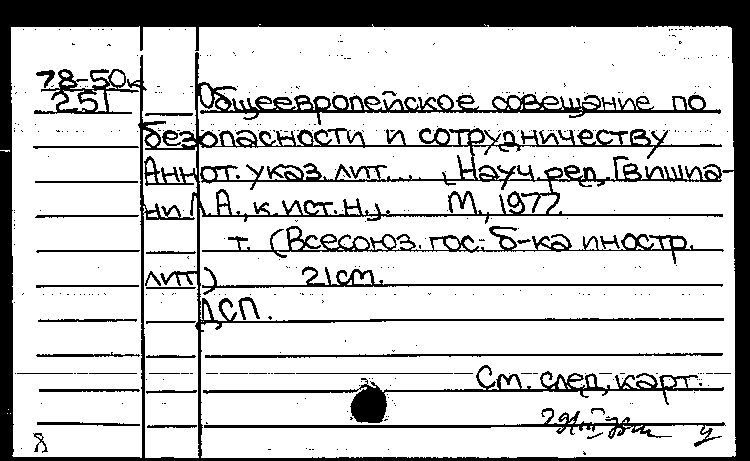 78-50к
251
Общеевропейское совещание по
безопасности и сотрудничеству
Аннот. указ. лит... Науч. ред. Гвишиа-
ни Л.А., к.ист.н.,. М., 1977.
т. (Всесоюз. гос. б-ка иностр.
лит.) 21 см.
ДСП.
См. след. карт.